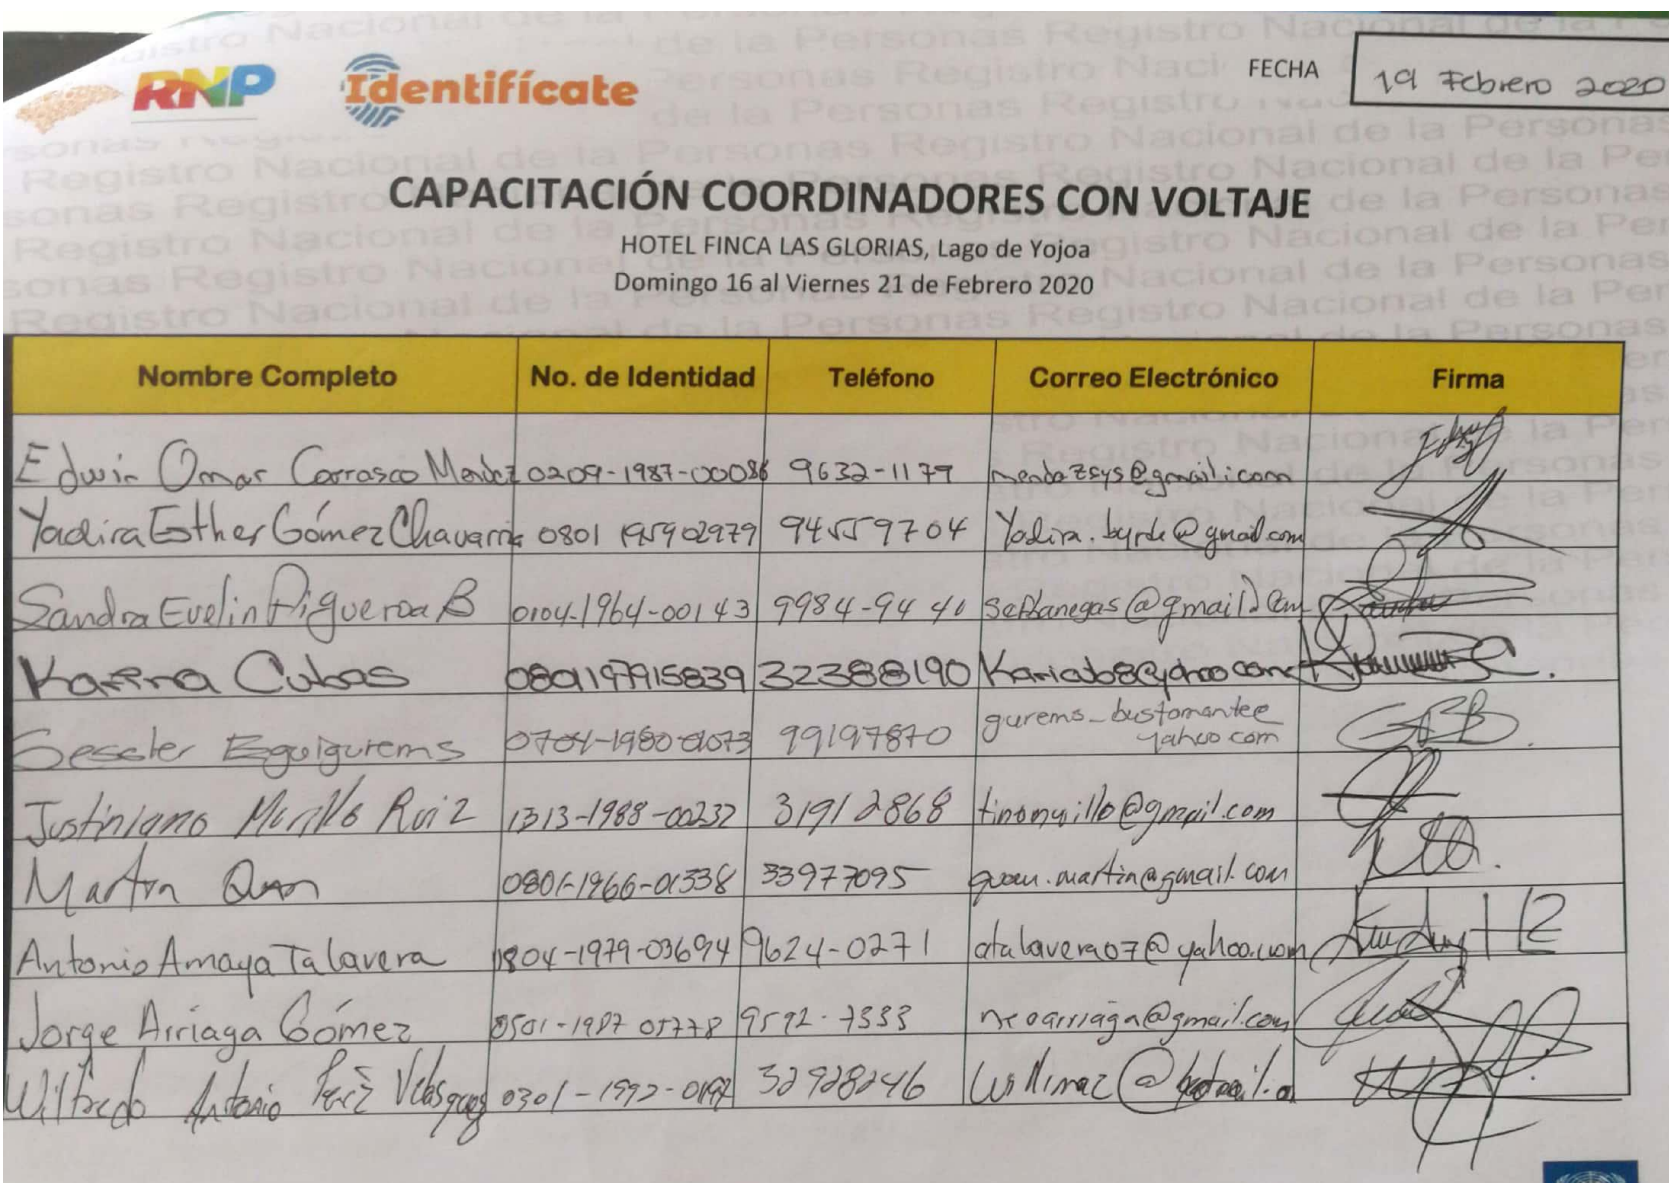 RNP Identifícate FECHA 19 Febrero 2020
CAPACITACIÓN COORDINADORES CON VOLTAJE
HOTEL FINCA LAS GLORIAS, Lago de Yojoa
Domingo 16 al Viernes 21 de Febrero 2020
Nombre Completo No. de Identidad Teléfono Correo Electrónico Firma
Edwin Omar Carrasco Mendez 0209-1987-00086 9632-1179
Yadira Esther Gómez Chavarria 0801 195902979 94559704 Yadira.byrde@gmail.com
Sandra Evelin Figueroa B 0104-1964-00143 9984-94 41
Karina Cubas 080197915839 32388190
Gessler Eguigurems 0704-1980-01073 99197870 gurems_bustamante@
yahoo.com
Justiniano Murillo Ruiz 1313-1988-00232 31912868 tinomurillo@gmail.com
Martin Quan 0801-1966-01338 33977095 quan.martin@gmail.com
Antonio Amaya Talavera 1804-1979-03694 9624-0271 atalavera07@yahoo.com
Jorge Arriaga Gómez 0501-1987 05778 9592-7333 neoarriaga@gmail.com
Wilfredo Antonio Velasquez 32928246